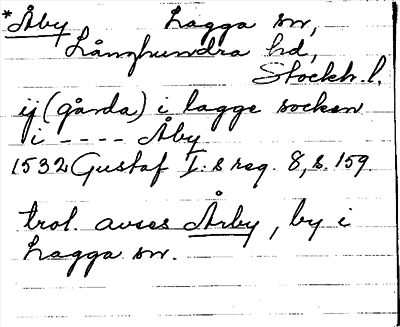 *Åby Lagga sn,
Långhundra hd,
Stockh. l.
ij (gårda) i lagge socken
i ---- Åby
1532 Gustaf I:s reg. 8, s. 159.
trol. avses Årby, by i
Lagga sn.